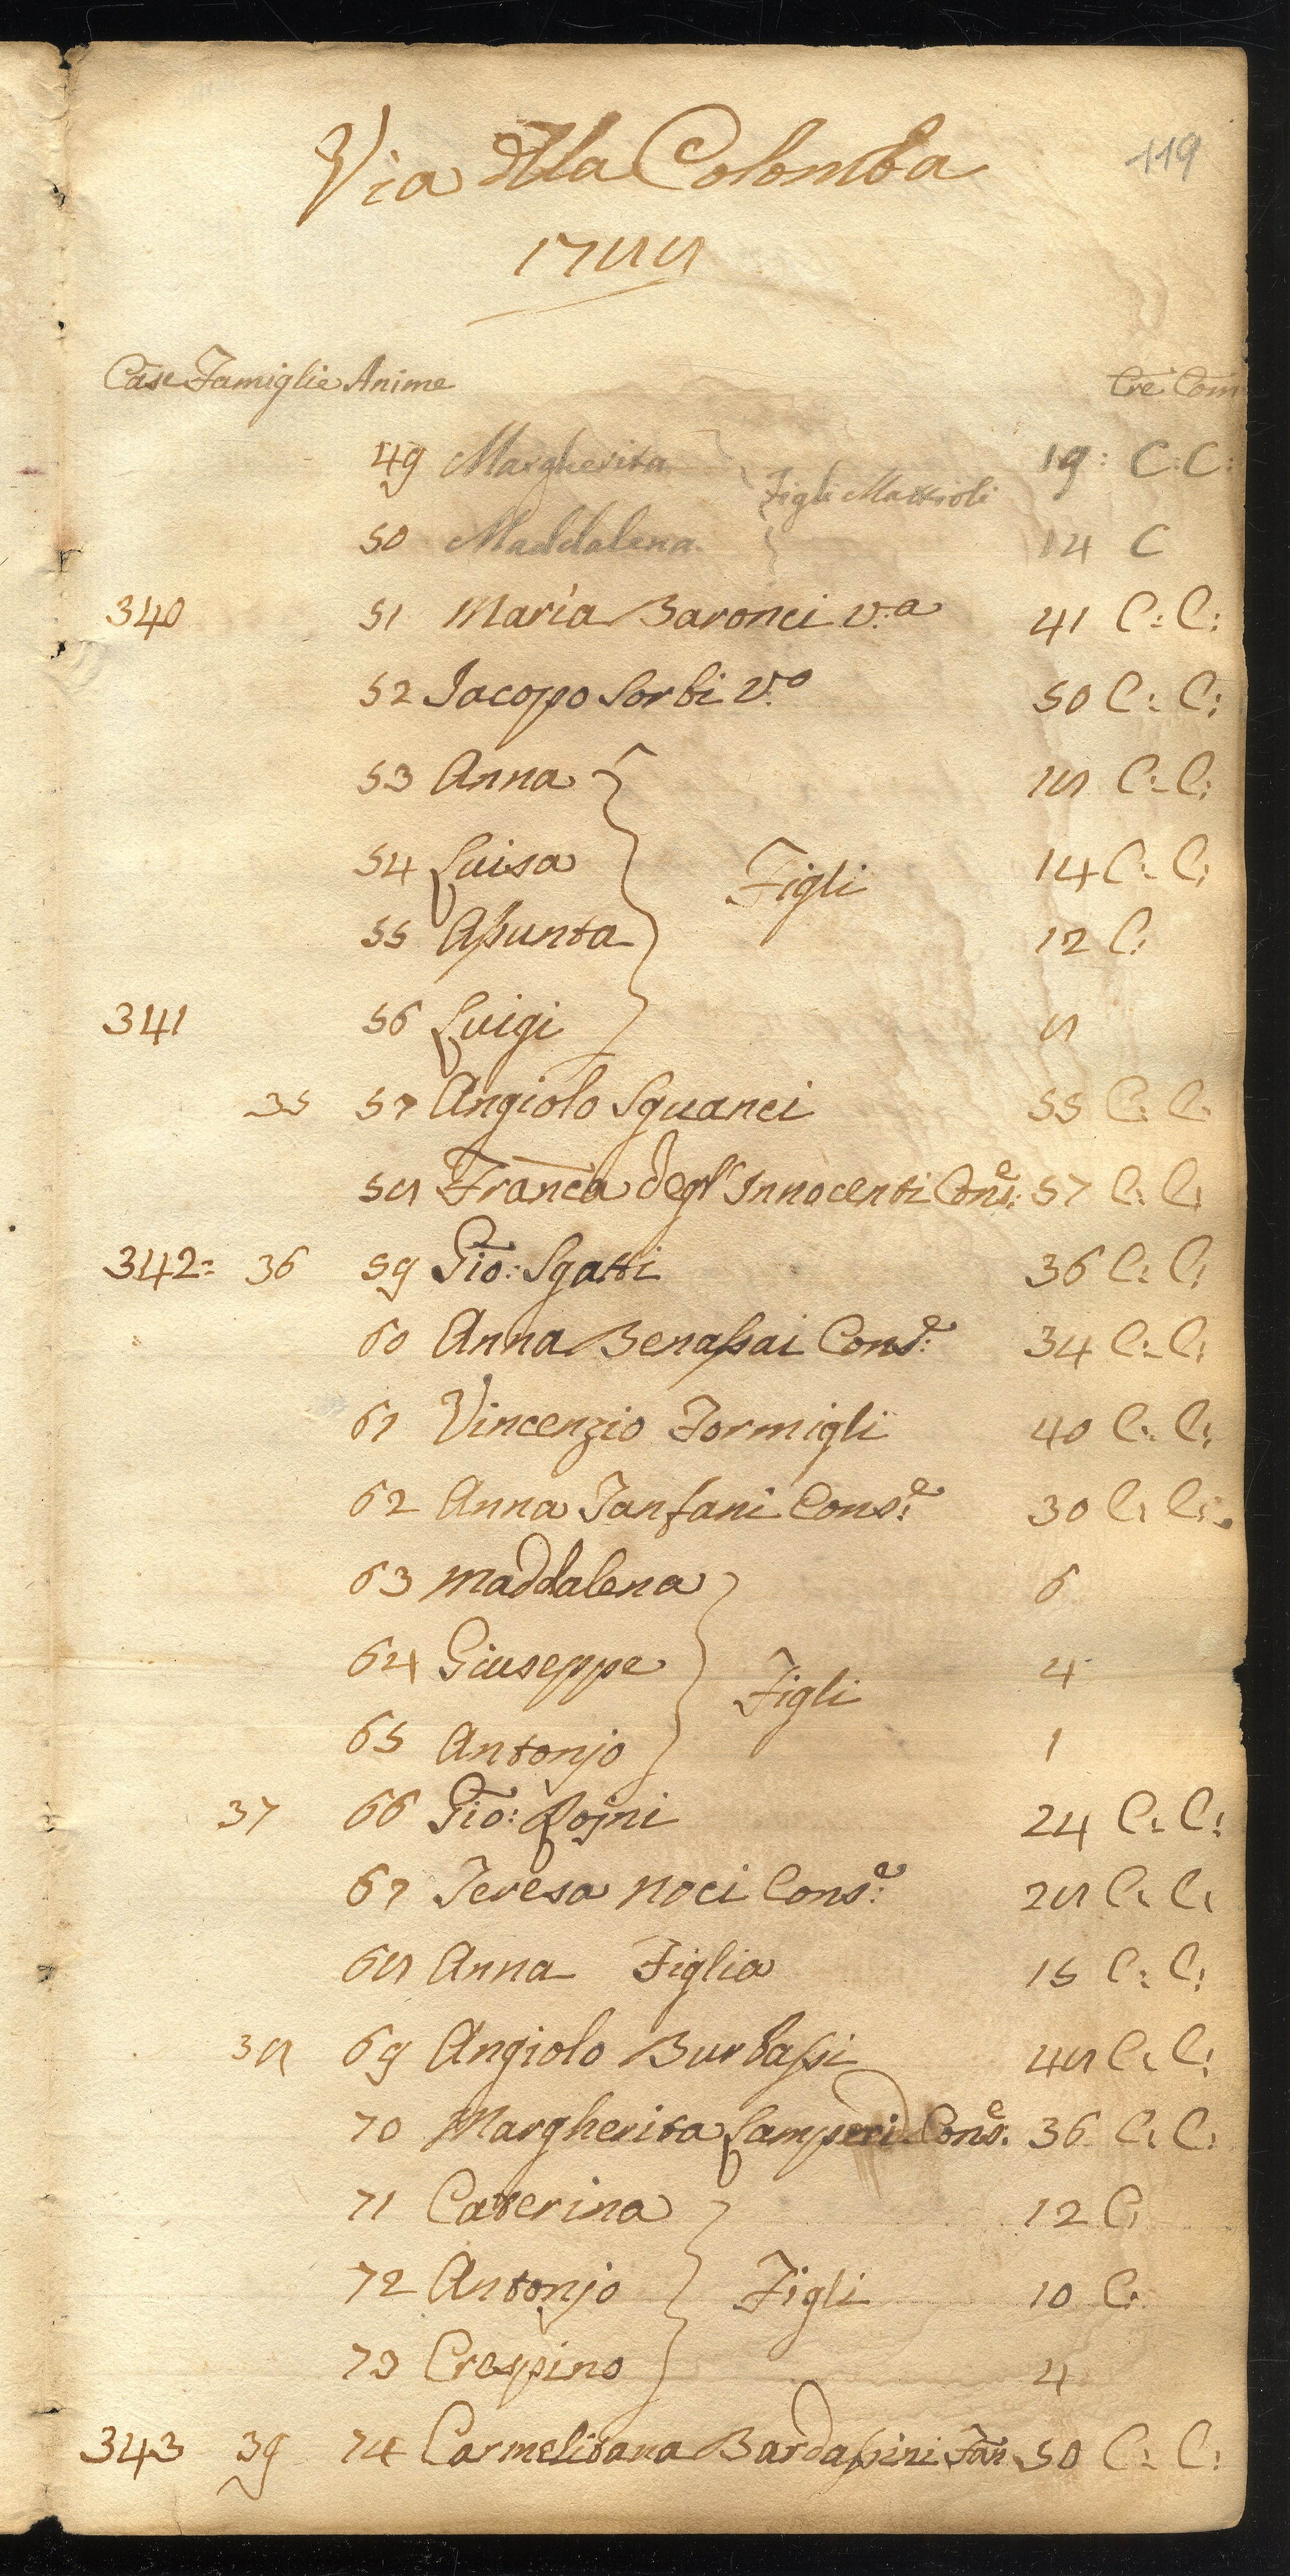 119
Via dlla Colomba
1788
Case Famiglie Anime Cre Com
49 Margherita 19: C: C:
Figli Mattioli
50 Maddalena 14 C
340 51 Maria Baronci v:a 41 C: C:
52 Jacopo Sorbi V:o 50 C: C:
53 Anna 18 C: C:
54 Luisa 14 C: C:
Figli
55 Assunta 12 C:
341 56 Luigi 8
35 57 Angiolo Sguanci 55 C: C:
58 Franca degl' Innocenti Cons:e 57 C: C:
342= 36 59 Gio: Sgatti 36 C: C:
60 Anna Benassai Cons:e 34 C: C:
61 Vincenzio Formigli 40 C: C:
62 Anna Fanfani Cons:e 30 C: C:
63 Maddalena 6
64 Giuseppe 4
Figli
65 Antonjo 1
37 66 Gio: Lojni 24 C: C:
67 Teresa Noci Cons:e 28 C: C:
68 Anna Figlia 15 C: C:
38 69 Angiolo Burbassi 48 C: C:
70 Margherita Lamperi Cons:e 36 C: C:
71 Caterina 12 C:
72 Antonjo Figli 10 C:
73 Crespino 4
343 39 74 Carmelitana Bardassini Fan: 50 C: C: